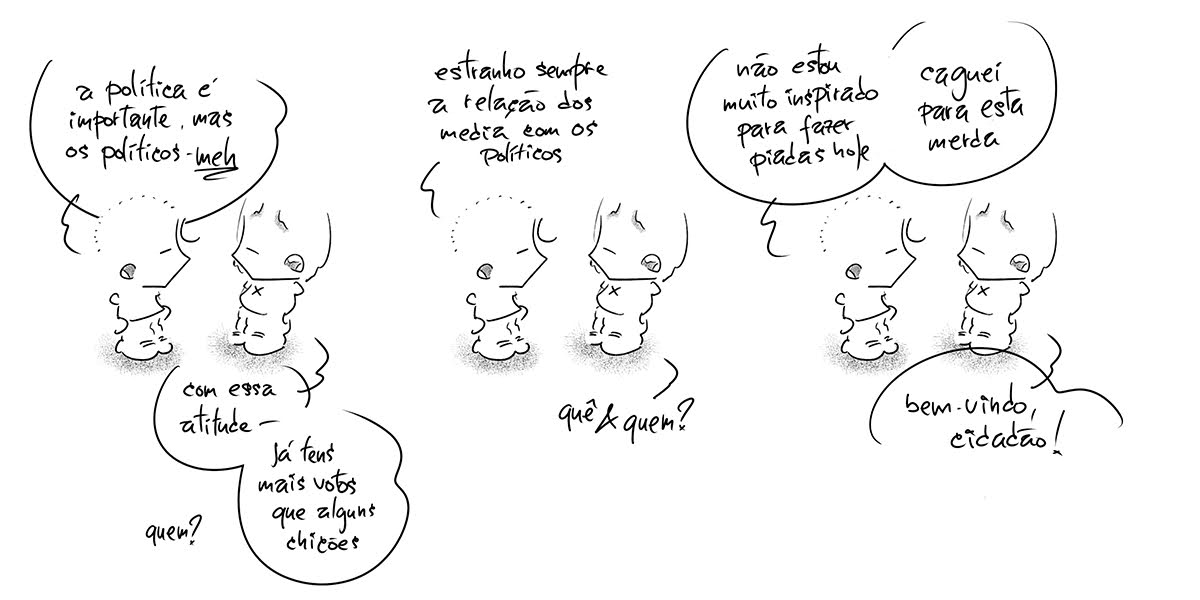 a política é
importante, mas
os políticos - meh
com essa
atitude —
já tens
mais votos
que alguns
chicões
quem?
estranho sempre
a relação dos
media com os
políticos
quê & quem?
não estou
muito inspirado
para fazer
piadas hoje
caguei
para esta
merda
bem-vindo,
cidadão!